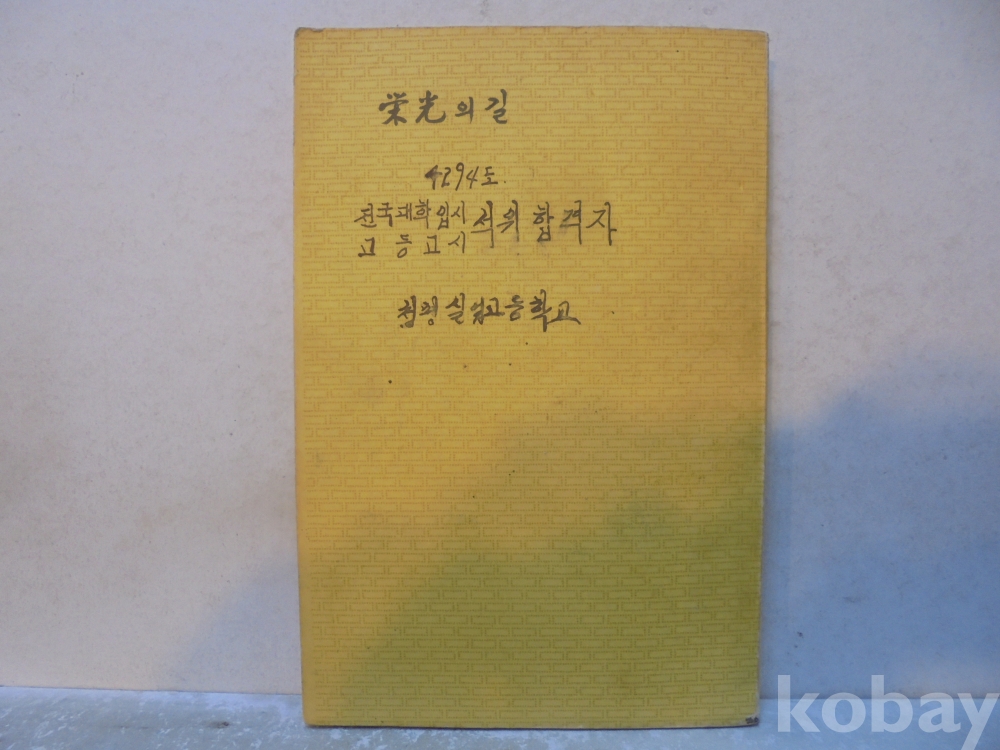 栄光의길
4294도.
전국대학입시
고등고시 석위합격자
청평실업고등학교
kobay